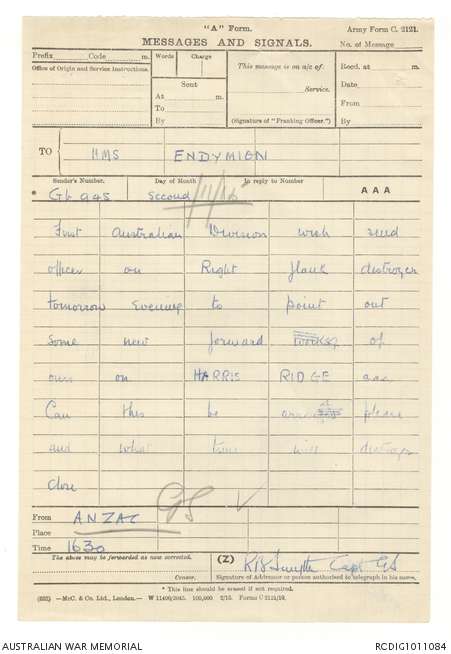 "A" Form.
Army Form C. 2121.
MESSAGES AND SIGNALS.
No. of Message
Prefix Code m.
Words Charge
This message is on a/c of:
Recd. at m.
Office of Origin and Service Instructions.
Sent
Date
At m.
Service.
From
To
By
(Signature of "Franking Officer.")
By
TO HMS ENDYMION
Sender's Number. Day of Month In reply to Number AAA
* Gb 945 Second /11/15
First Australian Division wish send
officer on Right flank destroyer
tomorrow evening to point out
some new forward works of
ours on HARRIS RIDGE aaa
Can this be please
and what time will destroyer
close
From ANZAC
GS
Place
Time 1630
The above may be forwarded as now corrected.
(Z) Capt GS
Censor.
Signature of Addressor or person authorised to telegraph in his name.
* This line should be erased if not required.
McC. & Co. Ltd., London.
AUSTRALIAN WAR MEMORIAL
RCDIG1011084